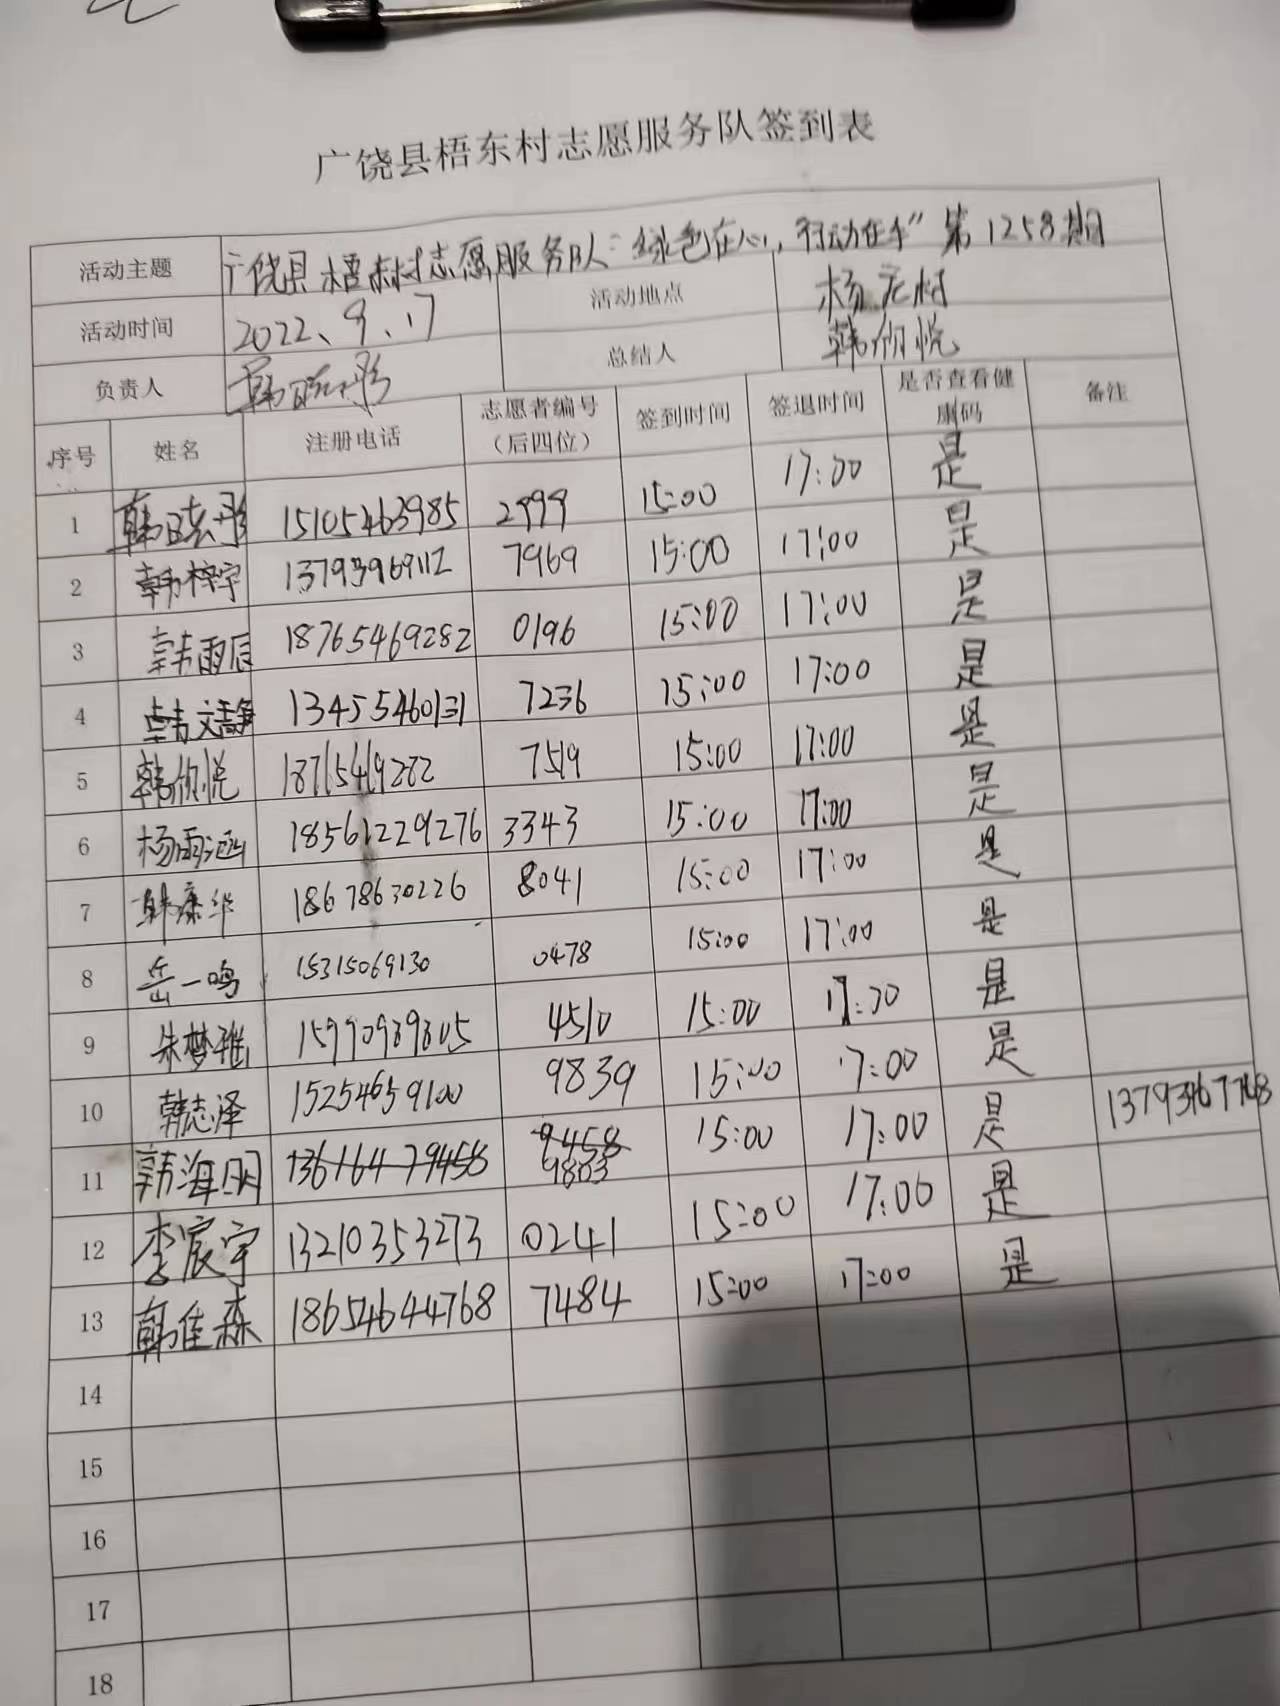 广饶县梧东村志愿服务队签到表
活动主题 广饶县梧东村志愿服务队"绿色在心,行动在手"第1258期
活动时间 2022、9、17 活动地点 杨庄村
负责人 韩晓彤 总结人 韩欣悦
序号 姓名 注册电话 志愿者编号(后四位) 签到时间 签退时间 是否查看健康码 备注
1 韩晓彤 15105463985 2999 15:00 17:00 是
2 韩梓宇 13793969112 7969 15:00 17:00 是
3 韩雨辰 18765469282 0196 15:00 17:00 是
4 韩文静 13455460131 7236 15:00 17:00 是
5 韩欣悦 18765469282 7519 15:00 17:00 是
6 杨雨涵 18561229276 3343 15:00 17:00 是
7 韩康华 18678630226 8041 15:00 17:00 是
8 岳一鸣 15315069130 0478 15:00 17:00 是
9 朱梦雅 4510 15:00 17:00 是
10 韩志泽 15254659100 9839 15:00 17:00 是
11 韩海明 13616479458 9458 9803 15:00 17:00 是
12 李宸宇 13210353273 0241 15:00 17:00 是
13 韩佳森 18654644768 7484 15:00 17:00 是
14
15
16
17
18